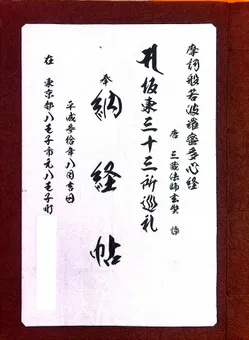 摩訶般若波羅蜜多心経
唐 三蔵法師玄奘 譯
坂東三十三所巡礼
奉 納経帖
平成参拾年八月吉日
在 東京都八王子市元八王子町